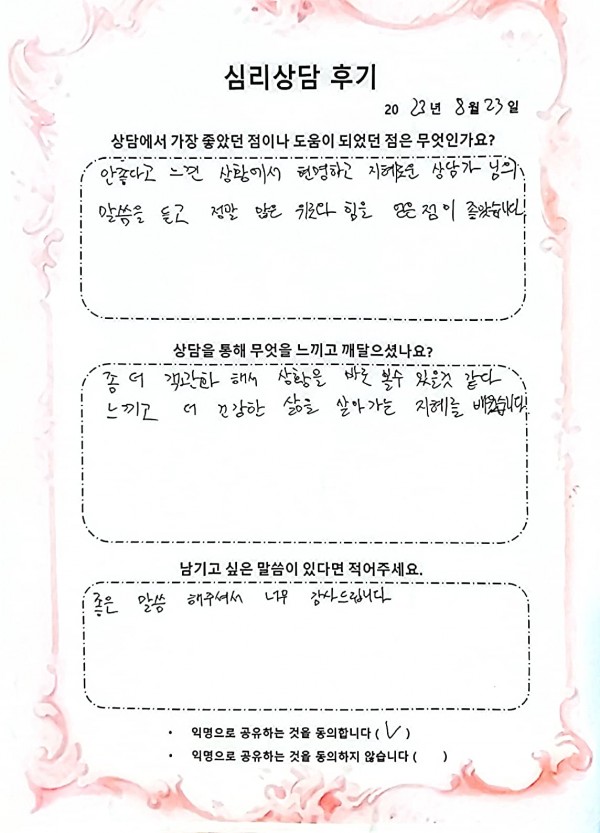 심리상담 후기
2023년 8월 23일
상담에서 가장 좋았던 점이나 도움이 되었던 점은 무엇인가요?
안좋다고 느낀 상황에서 현명하고 지혜로운 상담가 님의
말씀을 듣고 정말 많은 위로와 힘을 얻은 점이 좋았습니다
상담을 통해 무엇을 느끼고 깨달으셨나요?
좀 더 객관화 해서 상황을 바로 볼수 있을것 같다
느끼고 더 건강한 삶을 살아가는 지혜를 배웠습니다.
남기고 싶은 말씀이 있다면 적어주세요.
좋은 말씀 해주셔서 너무 감사드립니다
• 익명으로 공유하는 것을 동의합니다 ( V )
• 익명으로 공유하는 것을 동의하지 않습니다 ( )